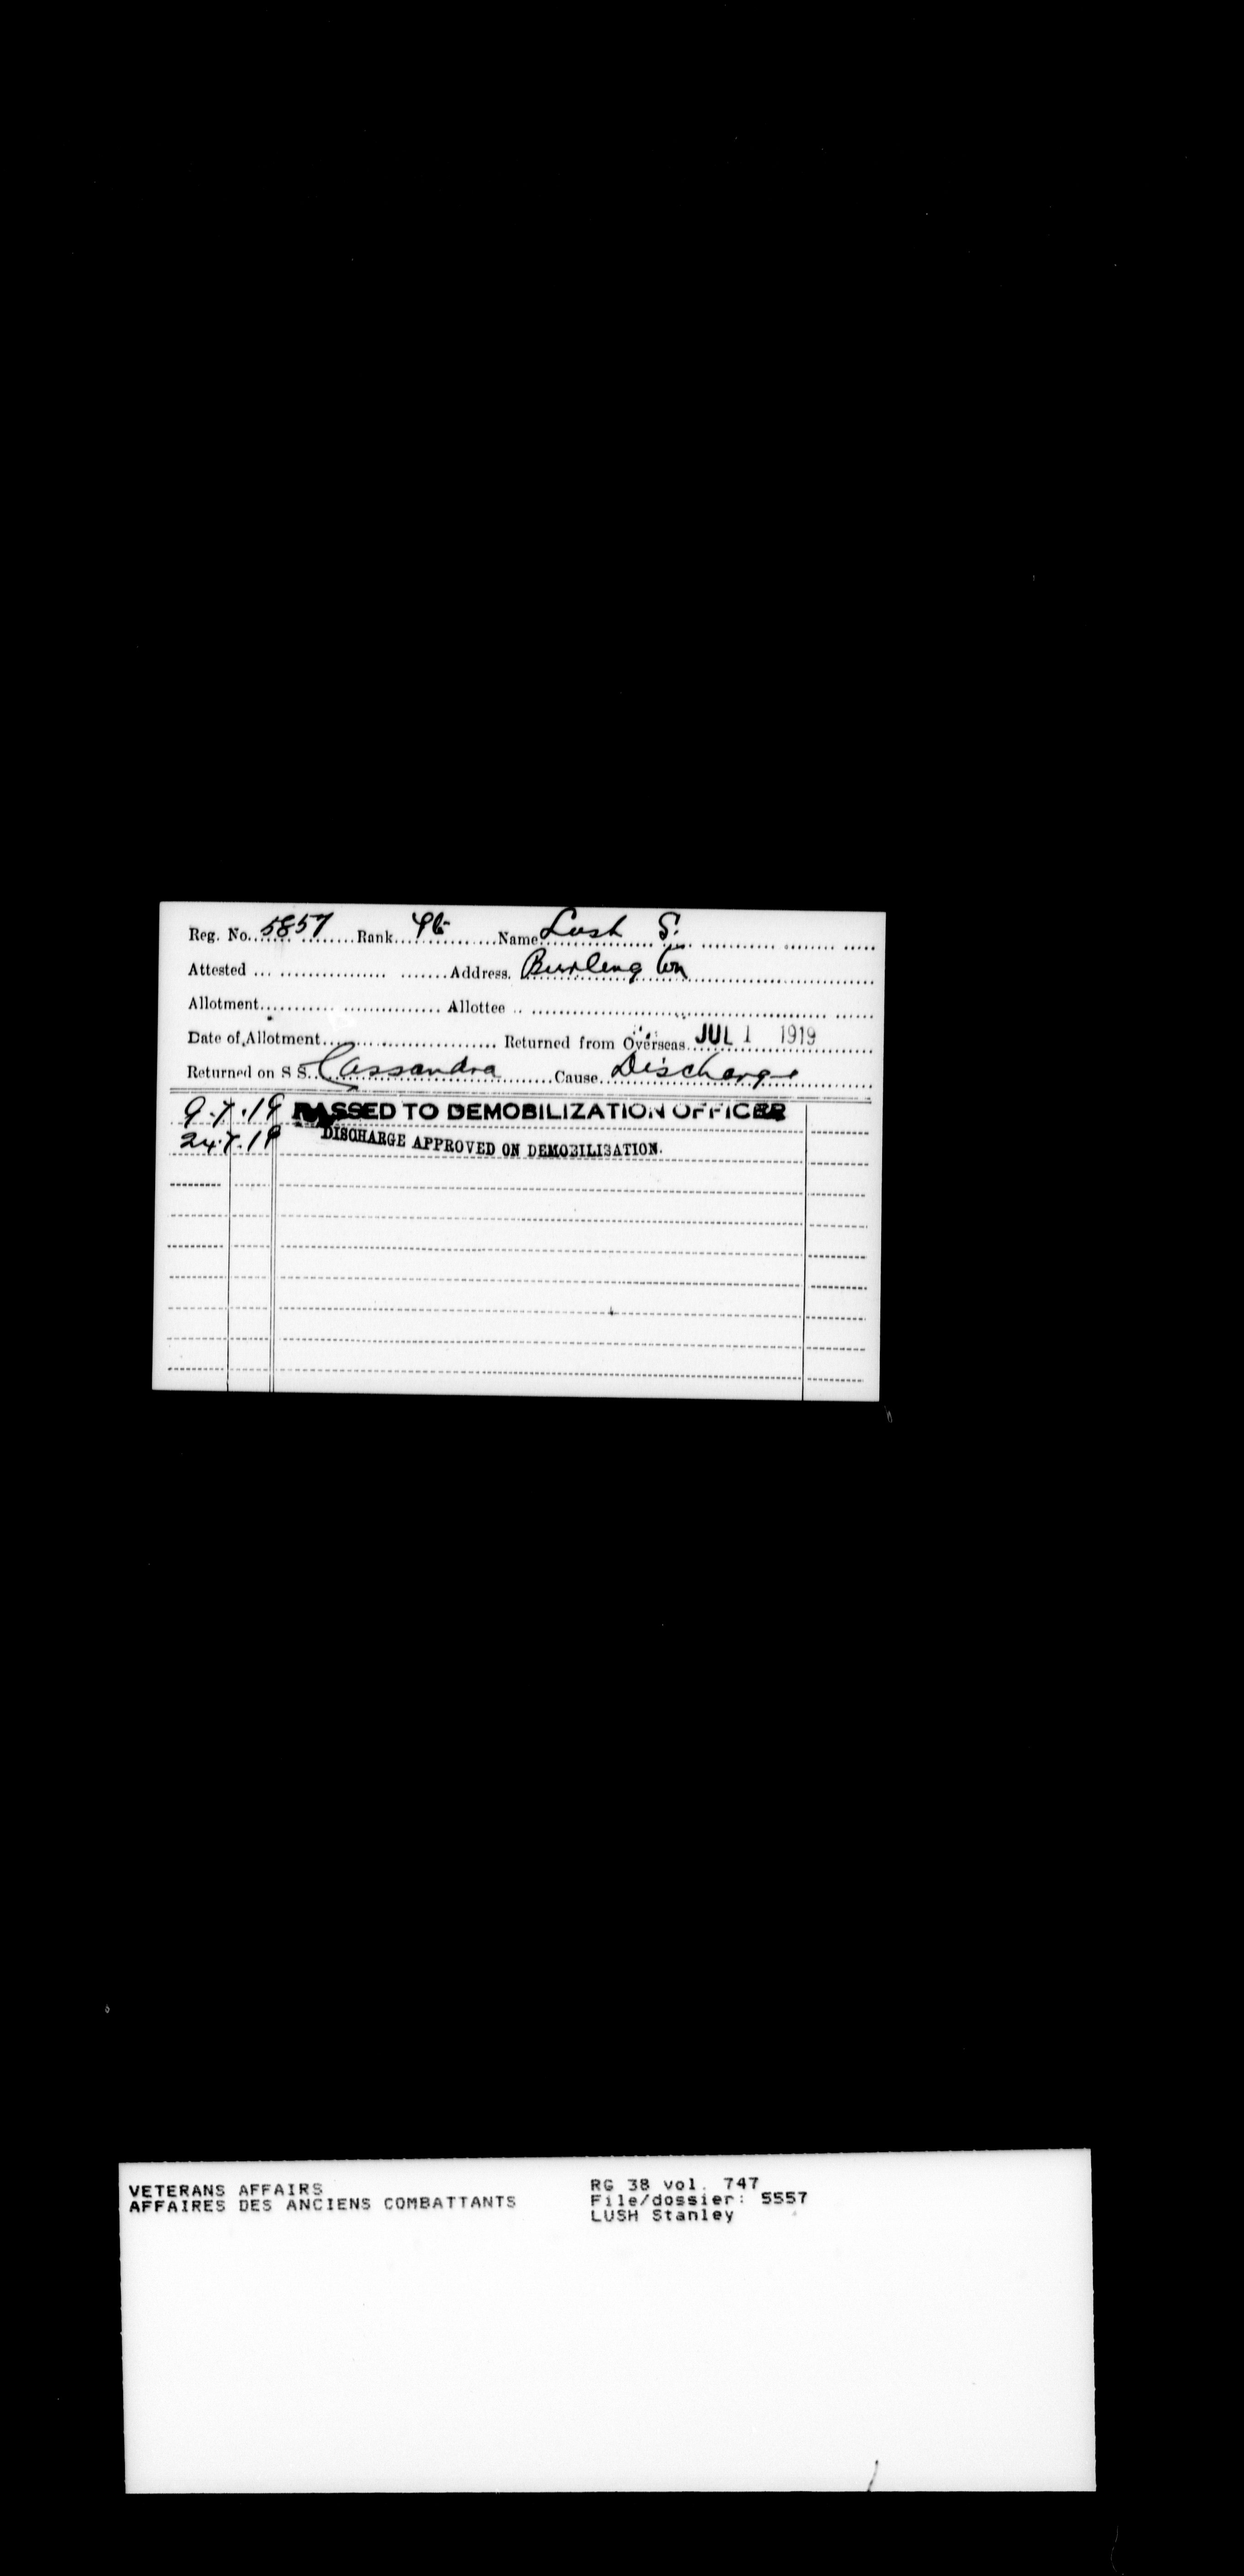 Reg. No. 5857 Rank Pte Name Lush S.
Attested Address. Burlington
Allotment Allottee
Date of Allotment Returned from Overseas JUL 1 1919
Returned on S S. Cassandra Cause Discharge
9.7.19 PASSED TO DEMOBILIZATION OFFICER
24.7.19 DISCHARGE APPROVED ON DEMOBILISATION.
VETERANS AFFAIRS
AFFAIRES DES ANCIENS COMBATTANTS
RG 38 vol. 747
File/dossier: 5557
LUSH Stanley